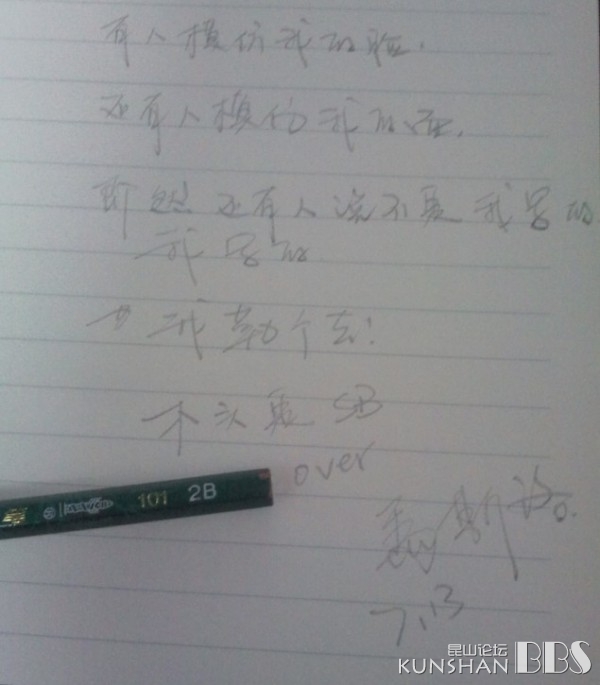 有人模仿我的脸,
还有人模仿我的
即然还有人说不是我写的
我写的
我勒个去!
SB
over
101 2B
7.13
昆山论坛
KUNSHAN BBS